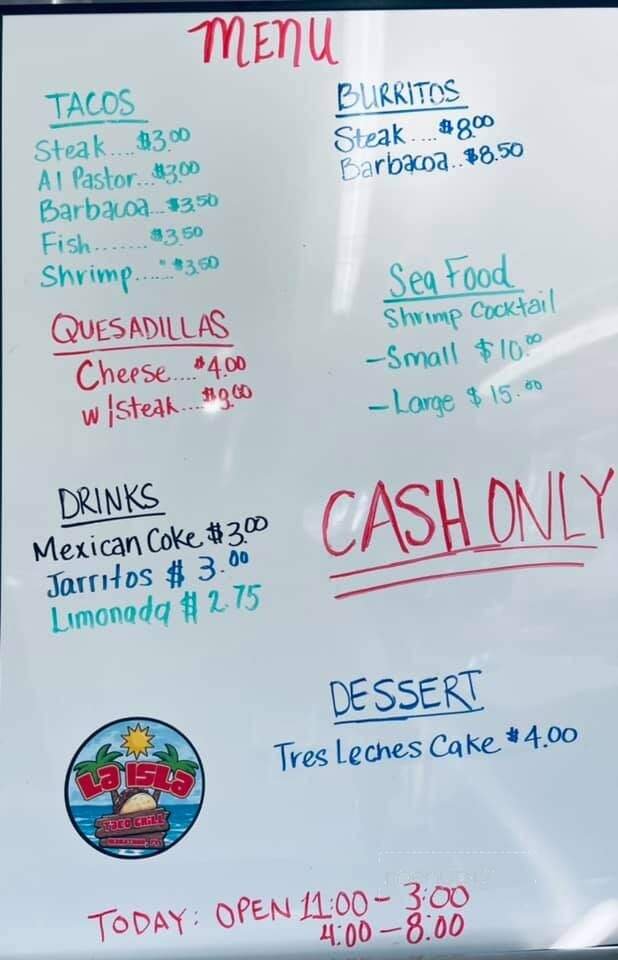 MENU
TACOS
Steak....$3.00
Al Pastor...$3.00
Barbacoa...$3.50
Fish.......$3.50
Shrimp......$3.50
QUESADILLAS
Cheese....$4.00
w/Steak....
DRINKS
Mexican Coke $3.00
Jarritos $3.00
Limonada $2.75
BURRITOS
Steak....$8.00
Barbacoa..$8.50
Sea Food
Shrimp Cocktail
-Small $10.00
-Large $15.00
CASH ONLY
DESSERT
Tres Leches Cake $4.00
LA ISLA
TACO GRILL
TODAY: OPEN 11:00-3:00
4:00-8:00